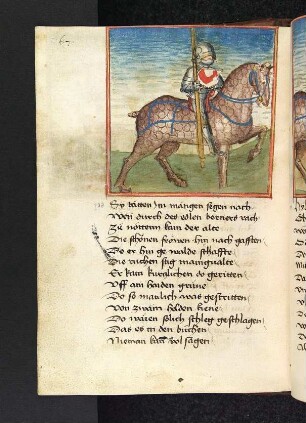 Sy tatten im mangen segen nach
Won durch des edlen herren
Ze nöttem kam der alte
Die schönen frowen hin nach gafften
Do er hin ge walde schaffte
Die richen stig manigualte
Er kam kurtzlichen do geritten
Uff am haiden grüne
Do so manlich was gestritten
Von zwain helden kiene
Do wären sölich schleg geschlagen
Das es in den büchen
Nieman kan vol sagen